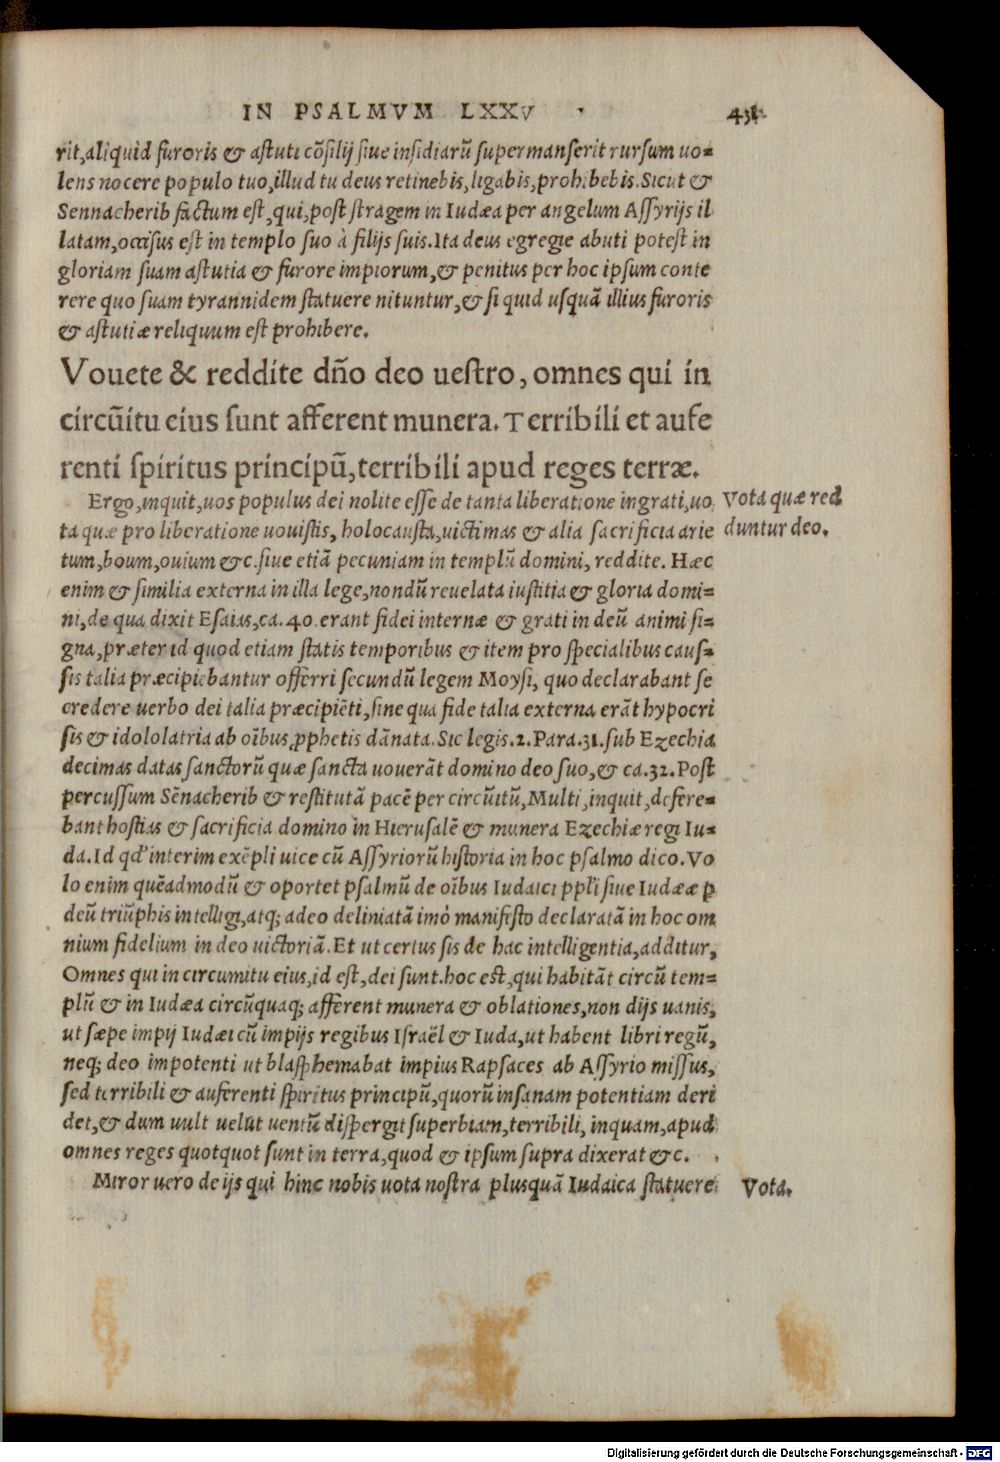 IN PSALMVM LXXV
rit,aliquid furoris & astuti cõsilij siue insidiarũ supermanserit rursum uo=
lens nocere populo tuo,illud tu deus retinebis,ligabis,prohibebis.Sicut &
Sennacherib factum est,qui,post stragem in Iudæa per angelum Assyrijs il
latam,occisus est in templo suo à filijs suis.Ita deus egregie abuti potest in
gloriam suam astutia & furore impiorum,& penitus per hoc ipsum conte
rere quo suam tyrannidem statuere nituntur,& si quid usquã illius furoris
& astutiæ reliquum est prohibere.
Vouete & reddite dño deo uestro, omnes qui in
circũitu eius sunt afferent munera. Terribili et aufe
renti spiritus principũ, terribili apud reges terræ.
Ergo,inquit,uos populus dei nolite esse de tanta liberatione ingrati,uo
Vota quæ red
ta quæ pro liberatione uouistis, holocausta,uictimas & alia sacrificia arie
duntur deo.
tum,boum,ouium &c.siue etiã pecuniam in templũ domini, reddite. Hæc
enim & similia externa in illa lege,nondũ reuelata iustitia & gloria domi=
ni,de qua dixit Esaias,ca.40.erant fidei internæ & grati in deũ animi si=
gna,præter id quod etiam statis temporibus & item pro specialibus caus=
sis talia præcipiebantur offerri secundũ legem Moysi, quo declarabant se
credere uerbo dei talia præcipiẽti,sine qua fide talia externa erãt hypocri
sis & idololatria ab oĩbus ꝓphetis dãnata.Sic legis.2.Para.31.sub Ezechia
decimas datas sanctorũ quæ sancta uouerãt domino deo suo,& ca.32.Post
percussum Sẽnacherib & restitutã pacẽ per circũitũ,Multi,inquit,defere=
bant hostias & sacrificia domino in Hierusalẽ & munera Ezechiæ regi Iu=
da.Id qđ interim exẽpli uice cũ Assyriorũ historia in hoc psalmo dico.Vo
lo enim quẽadmodũ & oportet psalmũ de oĩbus Iudaici ppłi siue Iudææ ꝑ
deũ triũphis intelligi,atq; adeo deliniatã imò manifesto declaratã in hoc om
nium fidelium in deo uictoriã.Et ut certus sis de hac intelligentia,additur,
Omnes qui in circumitu eius,id est,dei sunt.hoc est,qui habitãt circũ tem=
plũ & in Iudæa circũquaq; afferent munera & oblationes,non dijs uanis,
ut sæpe impij Iudæi cũ impijs regibus Israël & Iuda,ut habent libri regũ,
neq; deo impotenti ut blasphemabat impius Rapsaces ab Assyrio missus,
sed terribili & auferenti spiritus principũ,quorũ insanam potentiam deri
det,& dum uult uelut uentũ dispergit superbiam,terribili, inquam,apud
omnes reges quotquot sunt in terra,quod & ipsum supra dixerat &c.
Miror uero de ijs qui hinc nobis uota nostra plusquã Iudaica statuere
Vota.
Digitalisierung gefördert durch die Deutsche Forschungsgemeinschaft - DFG